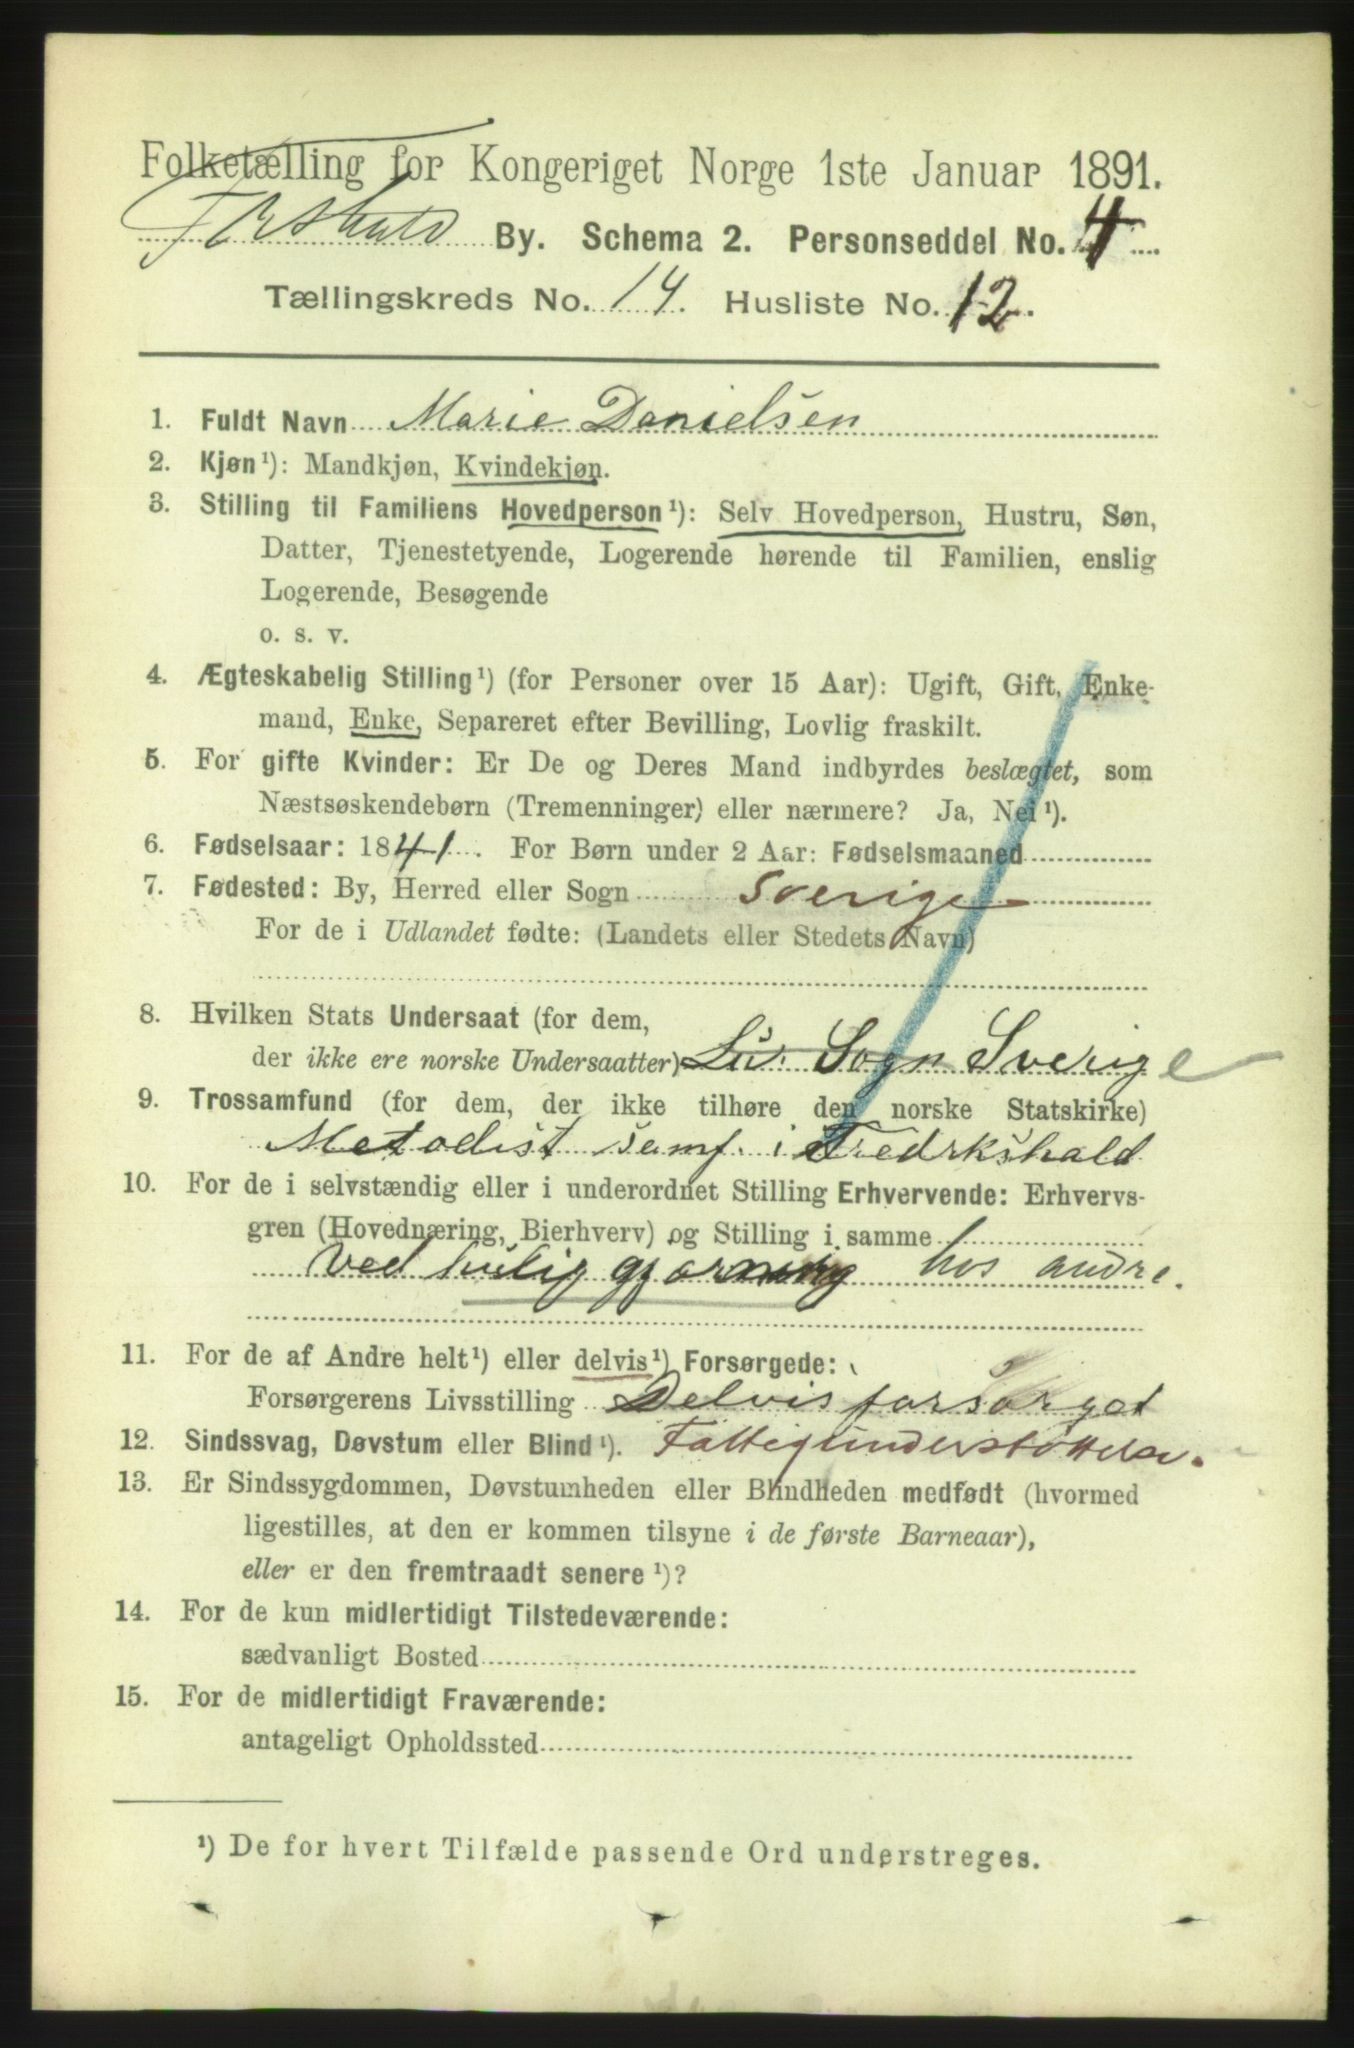 Folketælling for Kongeriget Norge 1ste Januar 1891.
By. Schema 2. Personseddel No. 4
Tællingskreds No. 14. Husliste No. 12.
1. Fuldt Navn Marie Danielsen
2. Kjøn¹): Mandkjøn, Kvindekjøn.
3. Stilling til Familiens Hovedperson¹): Selv Hovedperson, Hustru, Søn,
Datter, Tjenestetyende, Logerende hørende til Familien, enslig
Logerende, Besøgende
o. s. v.
4. Ægteskabelig Stilling¹) (for Personer over 15 Aar): Ugift, Gift, Enke-
mand, Enke, Separeret efter Bevilling, Lovlig fraskilt.
5. For gifte Kvinder: Er De og Deres Mand indbyrdes beslægtet, som
Næstsøskendebørn (Tremenninger) eller nærmere? Ja, Nei¹).
6. Fødselsaar: 1841. For Børn under 2 Aar: Fødselsmaaned
7. Fødested: By, Herred eller Sogn Sverige
For de i Udlandet fødte: (Landets eller Stedets Navn)
8. Hvilken Stats Undersaat (for dem,
der ikke ere norske Undersaatter) Sogn Sverige
9. Trossamfund (for dem, der ikke tilhøre den norske Statskirke)
Metodist samf. i Fredrkshald
10. For de i selvstændig eller i underordnet Stilling Erhvervende: Erhvervs-
gren (Hovednæring, Bierhverv) og Stilling i samme
Ved huslig gjerning hos andre.
11. For de af Andre helt¹) eller delvis¹) Forsørgede:
Forsørgerens Livsstilling Delvis forsørget
12. Sindssvag, Døvstum eller Blind¹). Fattigunderstøttelse.
13. Er Sindssygdommen, Døvstumheden eller Blindheden medfødt (hvormed
ligestilles, at den er kommen tilsyne i de første Barneaar),
eller er den fremtraadt senere ¹)?
14. For de kun midlertidigt Tilstedeværende:
sædvanligt Bosted
15. For de midlertidigt Fraværende:
antageligt Opholdssted
¹) De for hvert Tilfælde passende Ord understreges.